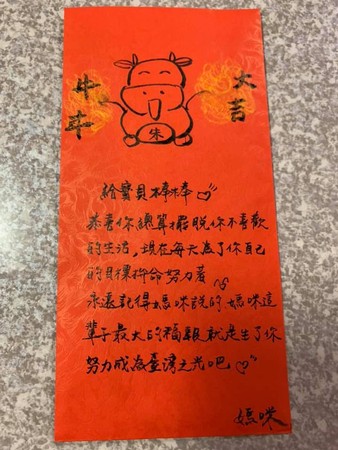 牛年
大吉
朱
給寶貝棒棒
恭喜你總算擺脫你不喜歡
的生活，現在每天為了你自己
的目標拚命努力著
永遠記得媽咪說的 媽咪這
輩子最大的福報就是生了你
努力成為臺灣之光吧
媽咪